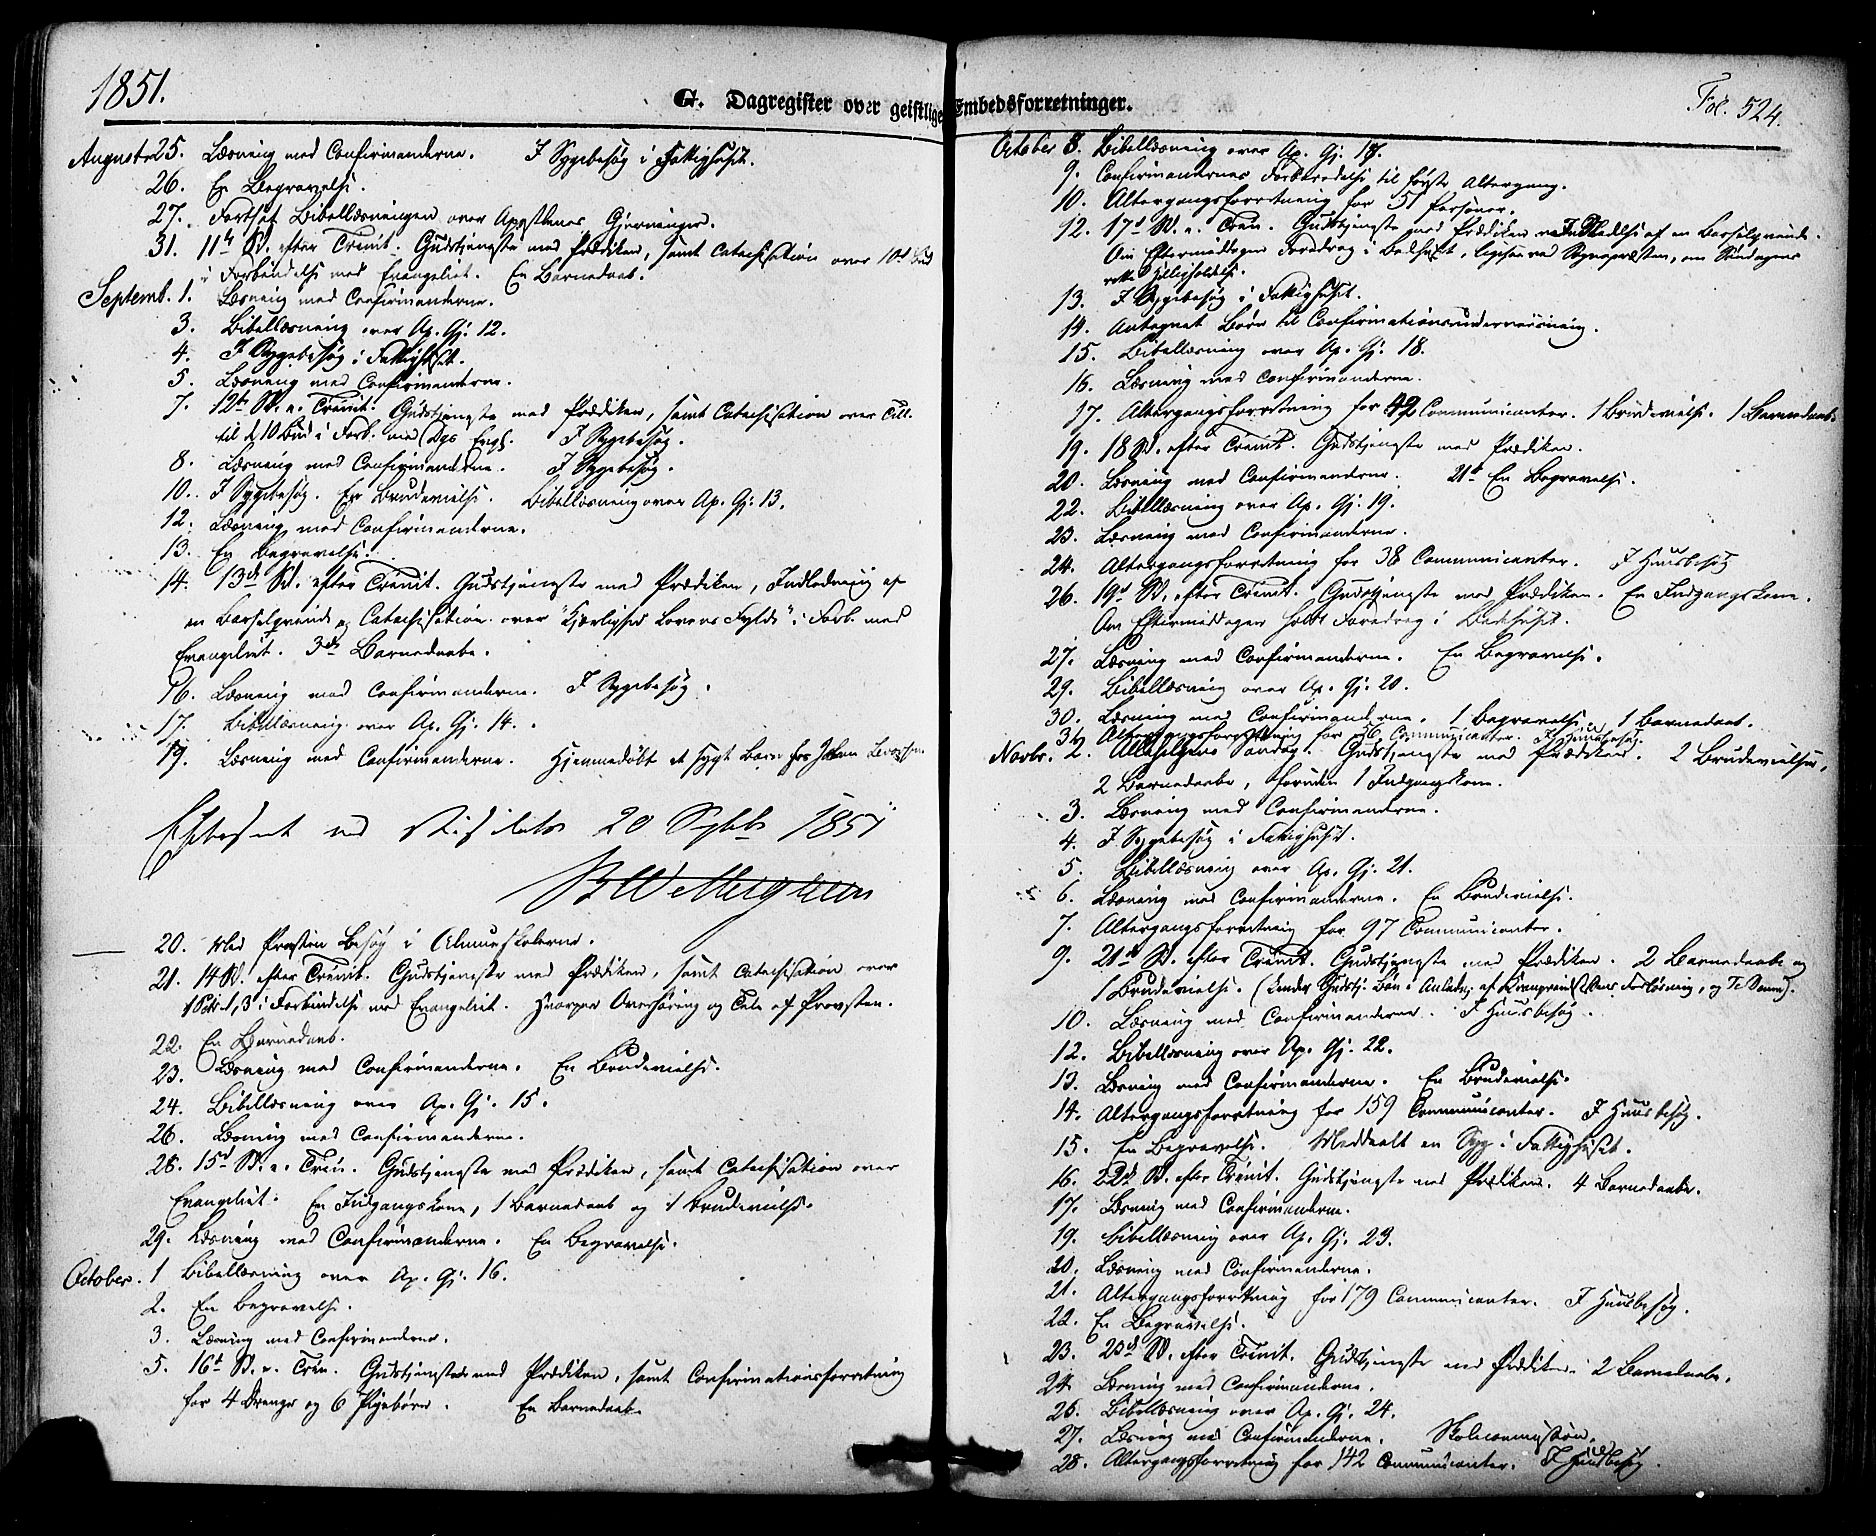 1851.
G. Dagregister over geistlige Embedsforretninger.
Fol. 524.
August 25. Læsning med Confirmanderne. I Sygebesøg i Fattighuset.
26. En Begravelse.
27. Fortsat Bibellæsningen over Apostlenes Gjerninger.
31. 11te S. efter Trinit. Gudstjeneste med Prædiken, samt Catechisation over 10d Bud
i Forbindelse med Evangeliet. En Barnedaab.
Septemb. 1. Læsning med Confirmanderne.
3. Bibellæsning over Ap. Gj. 12.
4. I Sygebesøg i Fattighuset.
5. Læsning med Confirmanderne.
7. 12te S. e. Trinit. Gudstjeneste med Prædiken, samt Catechisation over Till.
til d 10 Bud i Forb. med Dgs Evgl. I Sygebesøg.
8. Læsning med Confirmanderne. I Sygebesøg.
10. I Sygebesøg. En Brudevielse. Bibellæsning over Ap. Gj. 13.
12. Læsning med Confirmanderne.
13. En Begravelse.
14. 13de S. efter Trinit. Gudstjeneste med Prædiken, Indledning af
en Barselqvinde og Catechisation over "Kjærlighed Lovens Fylde" i Forb. med
Evangeliet. 3de Barnedaabe.
16. Læsning med Confirmanderne. I Sygebesøg.
17. Bibellæsning over Ap. Gj. 14.
19. Læsning med Confirmanderne. Hjemmedøbt et sygt Barn hos Johan
Efterseet ved Visitats 20 Septbr 1851
20. Med Provsten Besøg i Almueskolerne.
21. 14 S. efter Trinit. Gudstjeneste med Prædiken, samt Catechisation over
1 Pet. 1,3 i Forbindelse med Evangeliet. Hvorpaa Overhøring og Tale af Provsten.
22. En Barnedaab.
23. Læsning med Confirmanderne. En Brudevielse.
24. Bibellæsning over Ap. Gj. 15.
26. Læsning med Confirmanderne.
28. 15d S. e. Trin. Gudstjeneste med Prædiken, samt Catechisation over
Evangeliet. En Indgangskone, 1 Barnedaab og 1 Brudevielse.
29. Læsning med Confirmanderne. En Begravelse.
October. 1 Bibellæsning over Ap. Gj. 16.
2. En Begravelse.
3. Læsning med Confirmanderne.
5. 16t S. e. Trin. Gudstjeneste med Prædiken, samt Confirmationsforretning
for 4 Drenge og 6 Pigebørn. En Barnedaab.
October 8. Bibellæsning over Ap. Gj. 17.
9. Confirmandernes Forberedelse til første Altergang.
10. Altergangsforretning for 51 Personer.
12. 17d S. e. Trin. Gudstjeneste med Prædiken og Indledelse af en Barselqvinde.
Om Eftermiddagen Foredrag i Bedehuset, ligesaa ved Sognepræsten, om Søndagens
rette Helligholdelse.
13. I Sygebesøg i Fattighuset.
14. Antegnet Børn til Confirmationsunderviisning.
15. Bibellæsning over Ap. Gj. 18.
16. Læsning med Confirmanderne.
17. Altergangsforretning for 42 Communicanter. 1 Brudevielse. 1 Barnedaab.
19. 18 S. efter Trinit. Gudstjeneste med Prædiken.
20. Læsning med Confirmanderne. 21d En Begravelse.
22. Bibellæsning over Ap. Gj. 19.
23. Læsning med Confirmanderne.
24. Altergangsforretning for 38 Communicanter. I Huusbesøg
26. 19d S. efter Trinit. Gudstjeneste med Prædiken. En Indgangskone.
Om Eftermiddagen holdt Foredrag i Bedehuset.
27. Læsning med Confirmanderne. En Begravelse.
29. Bibellæsning over Ap. Gj. 20.
30. Læsning med Confirmanderne. 1 Begravelse. 1 Barnedaab.
31. Altergangsforretning for 56 Communicanter. I Huusbesøg.
Novbr. 2. Allehelgens Søndag. Gudstjeneste med Prædiken. 2 Brudevielser,
2 Barnedaabe, foruden 1 Indgangskone.
3. Læsning med Confirmanderne.
4. I Sygebesøg i Fattighuset.
5. Bibellæsning over Ap. Gj. 21.
6. Læsning med Confirmanderne. En Brudevielse.
7. Altergangsforretning for 97 Communicanter.
9. 21de S. efter Trinit. Gudstjeneste med Prædiken. 2 Barnedaabe og
1 Brudevielse. (Under Gudstj. Bøn i Anledn. af Kronprindsessens Forløsning, og Te Deum).
10. Læsning med Confirmanderne. I Huusbesøg.
12. Bibellæsning over Ap. Gj. 22.
13. Læsning med Confirmanderne. En Brudevielse.
14. Altergangsforretning for 159 Communicanter. I Huusbesøg.
15. En Begravelse. Meddeelt en Syg i Fattighuset.
16. 22de S. efter Trinit. Gudstjeneste med Prædiken. 4 Barnedaabe.
17. Læsning med Confirmanderne.
19. Bibellæsning over Ap. Gj. 23.
20. Læsning med Confirmanderne.
21. Altergangsforretning for 179 Communicanter. I Huusbesøg.
22. En Begravelse.
23. 23d S. efter Trinit. Gudstjeneste med Prædiken. 2 Barnedaabe.
24. Læsning med Confirmanderne.
26. Bibellæsning over Ap. Gj. 24.
27. Læsning med Confirmanderne. Skolecommission.
28. Altergangsforretning for 142 Communicanter. I Huusbesøg.